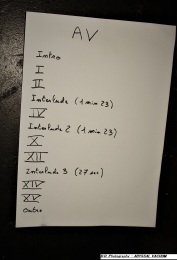 AV
Intro
I
II
Interlude (1 min 23)
IV
Interlude 2 (1 min 23)
X
XII
Interlude 3 (27 sec)
XIV
XV
Outro